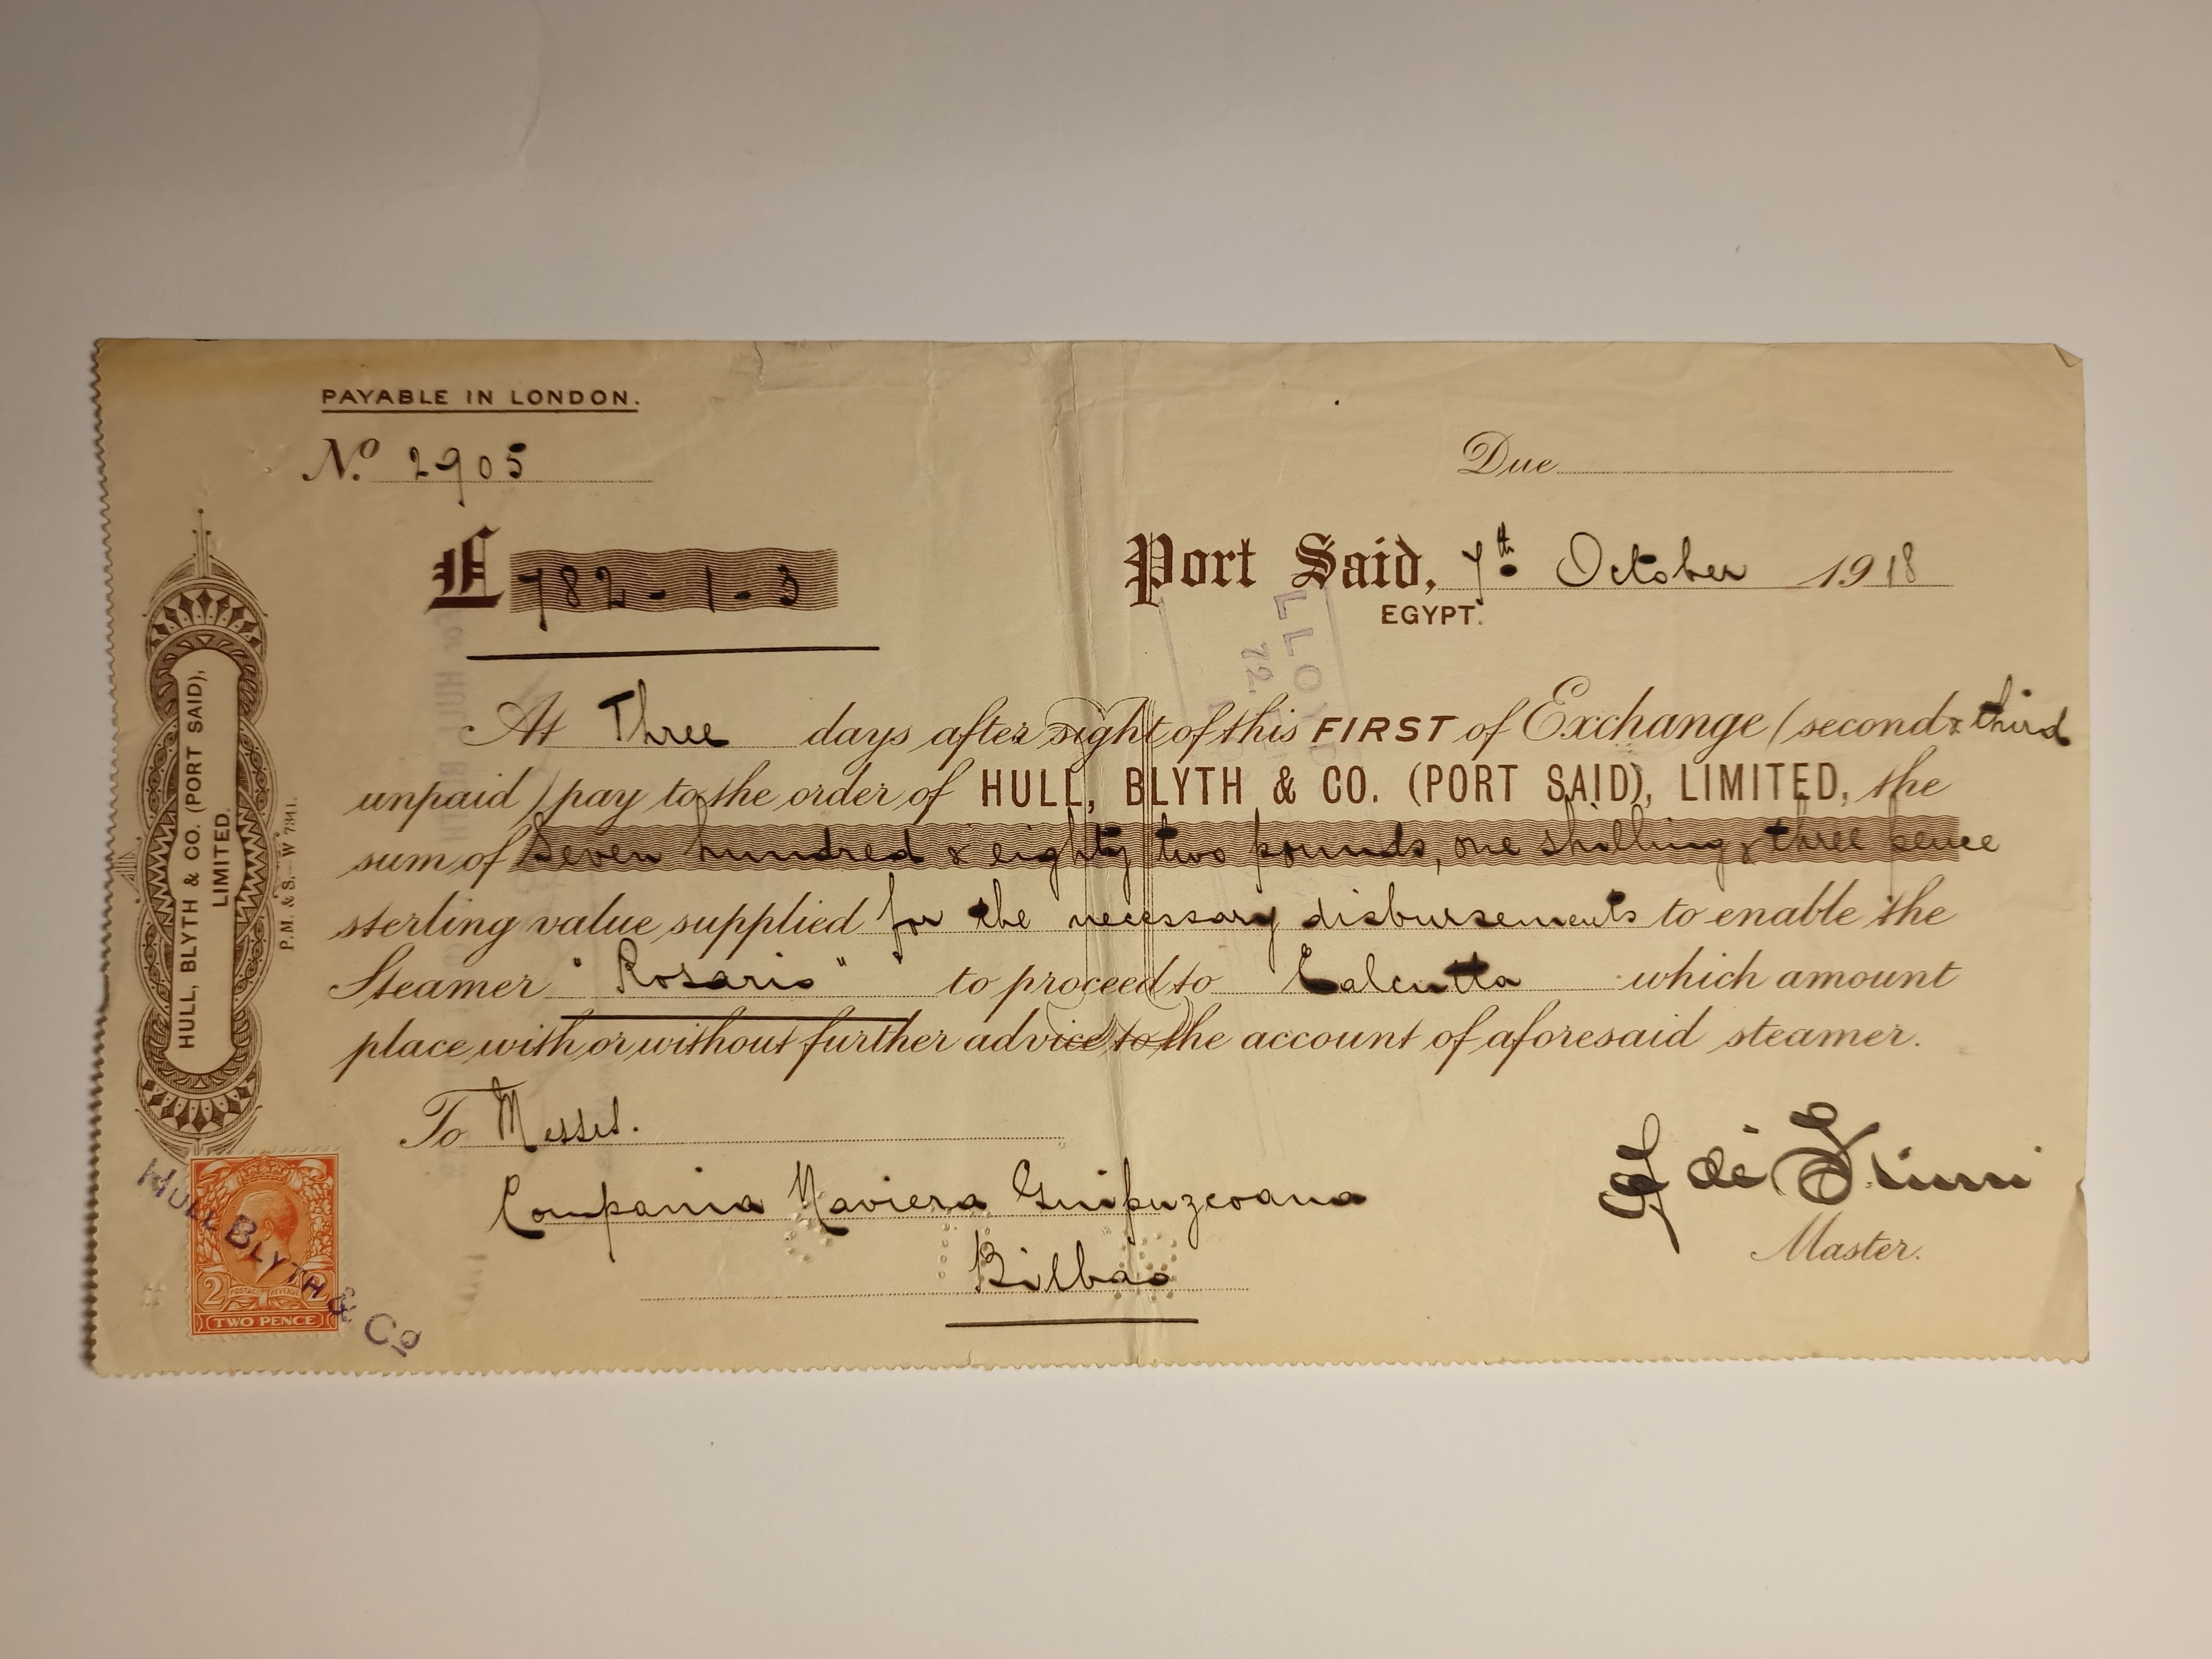 PAYABLE IN LONDON.
No. 2905
Due
£ 782 - 1 - 3
Port Said, 7th October 1918
EGYPT.
At Three days after sight of this FIRST of Exchange (second & third
unpaid) pay to the order of HULL, BLYTH & CO. (PORT SAID), LIMITED, the
sum of Seven hundred & eighty two pounds, one shilling & three pence
sterling value supplied for the necessary disbursements to enable the
Steamer "Rosario" to proceed to Calcutta which amount
place with or without further advice to the account of aforesaid steamer.
To Messrs.
Compania Naviera Guipuzcoana
Bilbao
Master.
HULL, BLYTH & CO. (PORT SAID),
LIMITED.
P.M. & S.—W 7341.
HULL BLYTH & Co
2
POSTAGE REVENUE
TWO PENCE